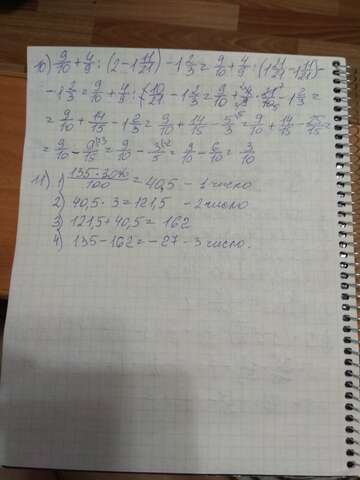 10) 9/10 + 4/9 : (2 - 1 11/21) - 1 2/3 = 9/10 + 4/9 : (1 21/21 - 1 11/21) -
- 1 2/3 = 9/10 + 4/9 : 10/21 - 1 2/3 = 9/10 + 4/9 · 21/10 - 1 2/3 =
= 9/10 + 14/15 - 1 2/3 = 9/10 + 14/15 - 5/3 = 9/10 + 14/15 - 25/15 =
= 9/10 - 9/15 = 9/10 - 3/5 = 9/10 - 6/10 = 3/10
11) 1) 135·30%/100 = 40,5 - 1 число
2) 40,5 · 3 = 121,5 - 2 число
3) 121,5 + 40,5 = 162
4) 135 - 162 = - 27 - 3 число.